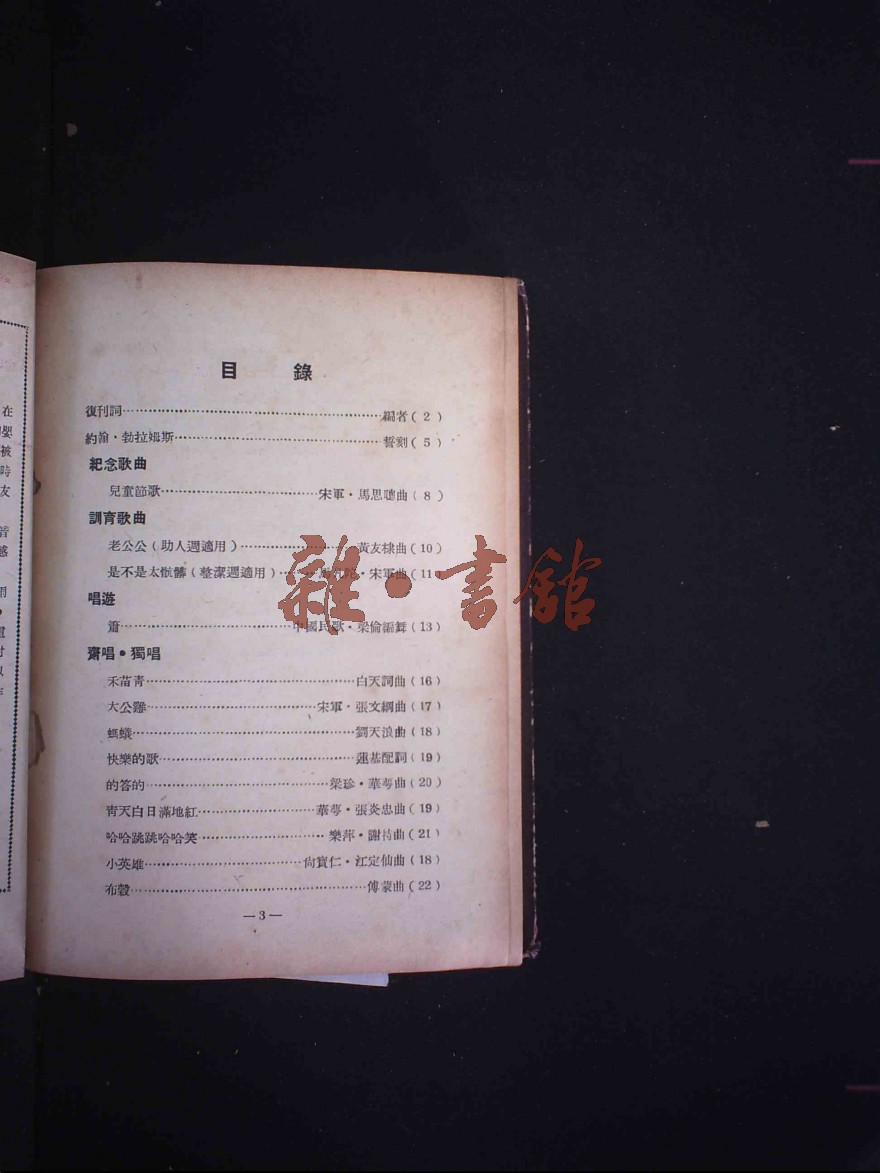 目　錄
復刊詞……編者（2）
約翰・勃拉姆斯……誓刻（5）
紀念歌曲
兒童節歌……宋軍・馬思聰曲（8）
訓育歌曲
老公公（助人週適用）……黃友棣曲（10）
是不是太骯髒（整潔週適用）……宋軍曲（11
唱遊
簫……中國民歌・梁倫編舞（13）
齋唱・獨唱
禾苗靑……白天詞曲（16）
大公雞……宋軍・張文綱曲（17）
螞蟻……劉天浪曲（18）
快樂的歌……蓮基配詞（19）
的答的……梁珍・華萼曲（20）
靑天白日滿地紅……華萼・張炎忠曲（19）
哈哈跳跳哈哈笑……樂萍・謝曲（21）
小英雄……尙寶仁・江定仙曲（18）
布穀……傅蒙曲（22）
—3—
雜・書館
在
嬰
被
時
友
感